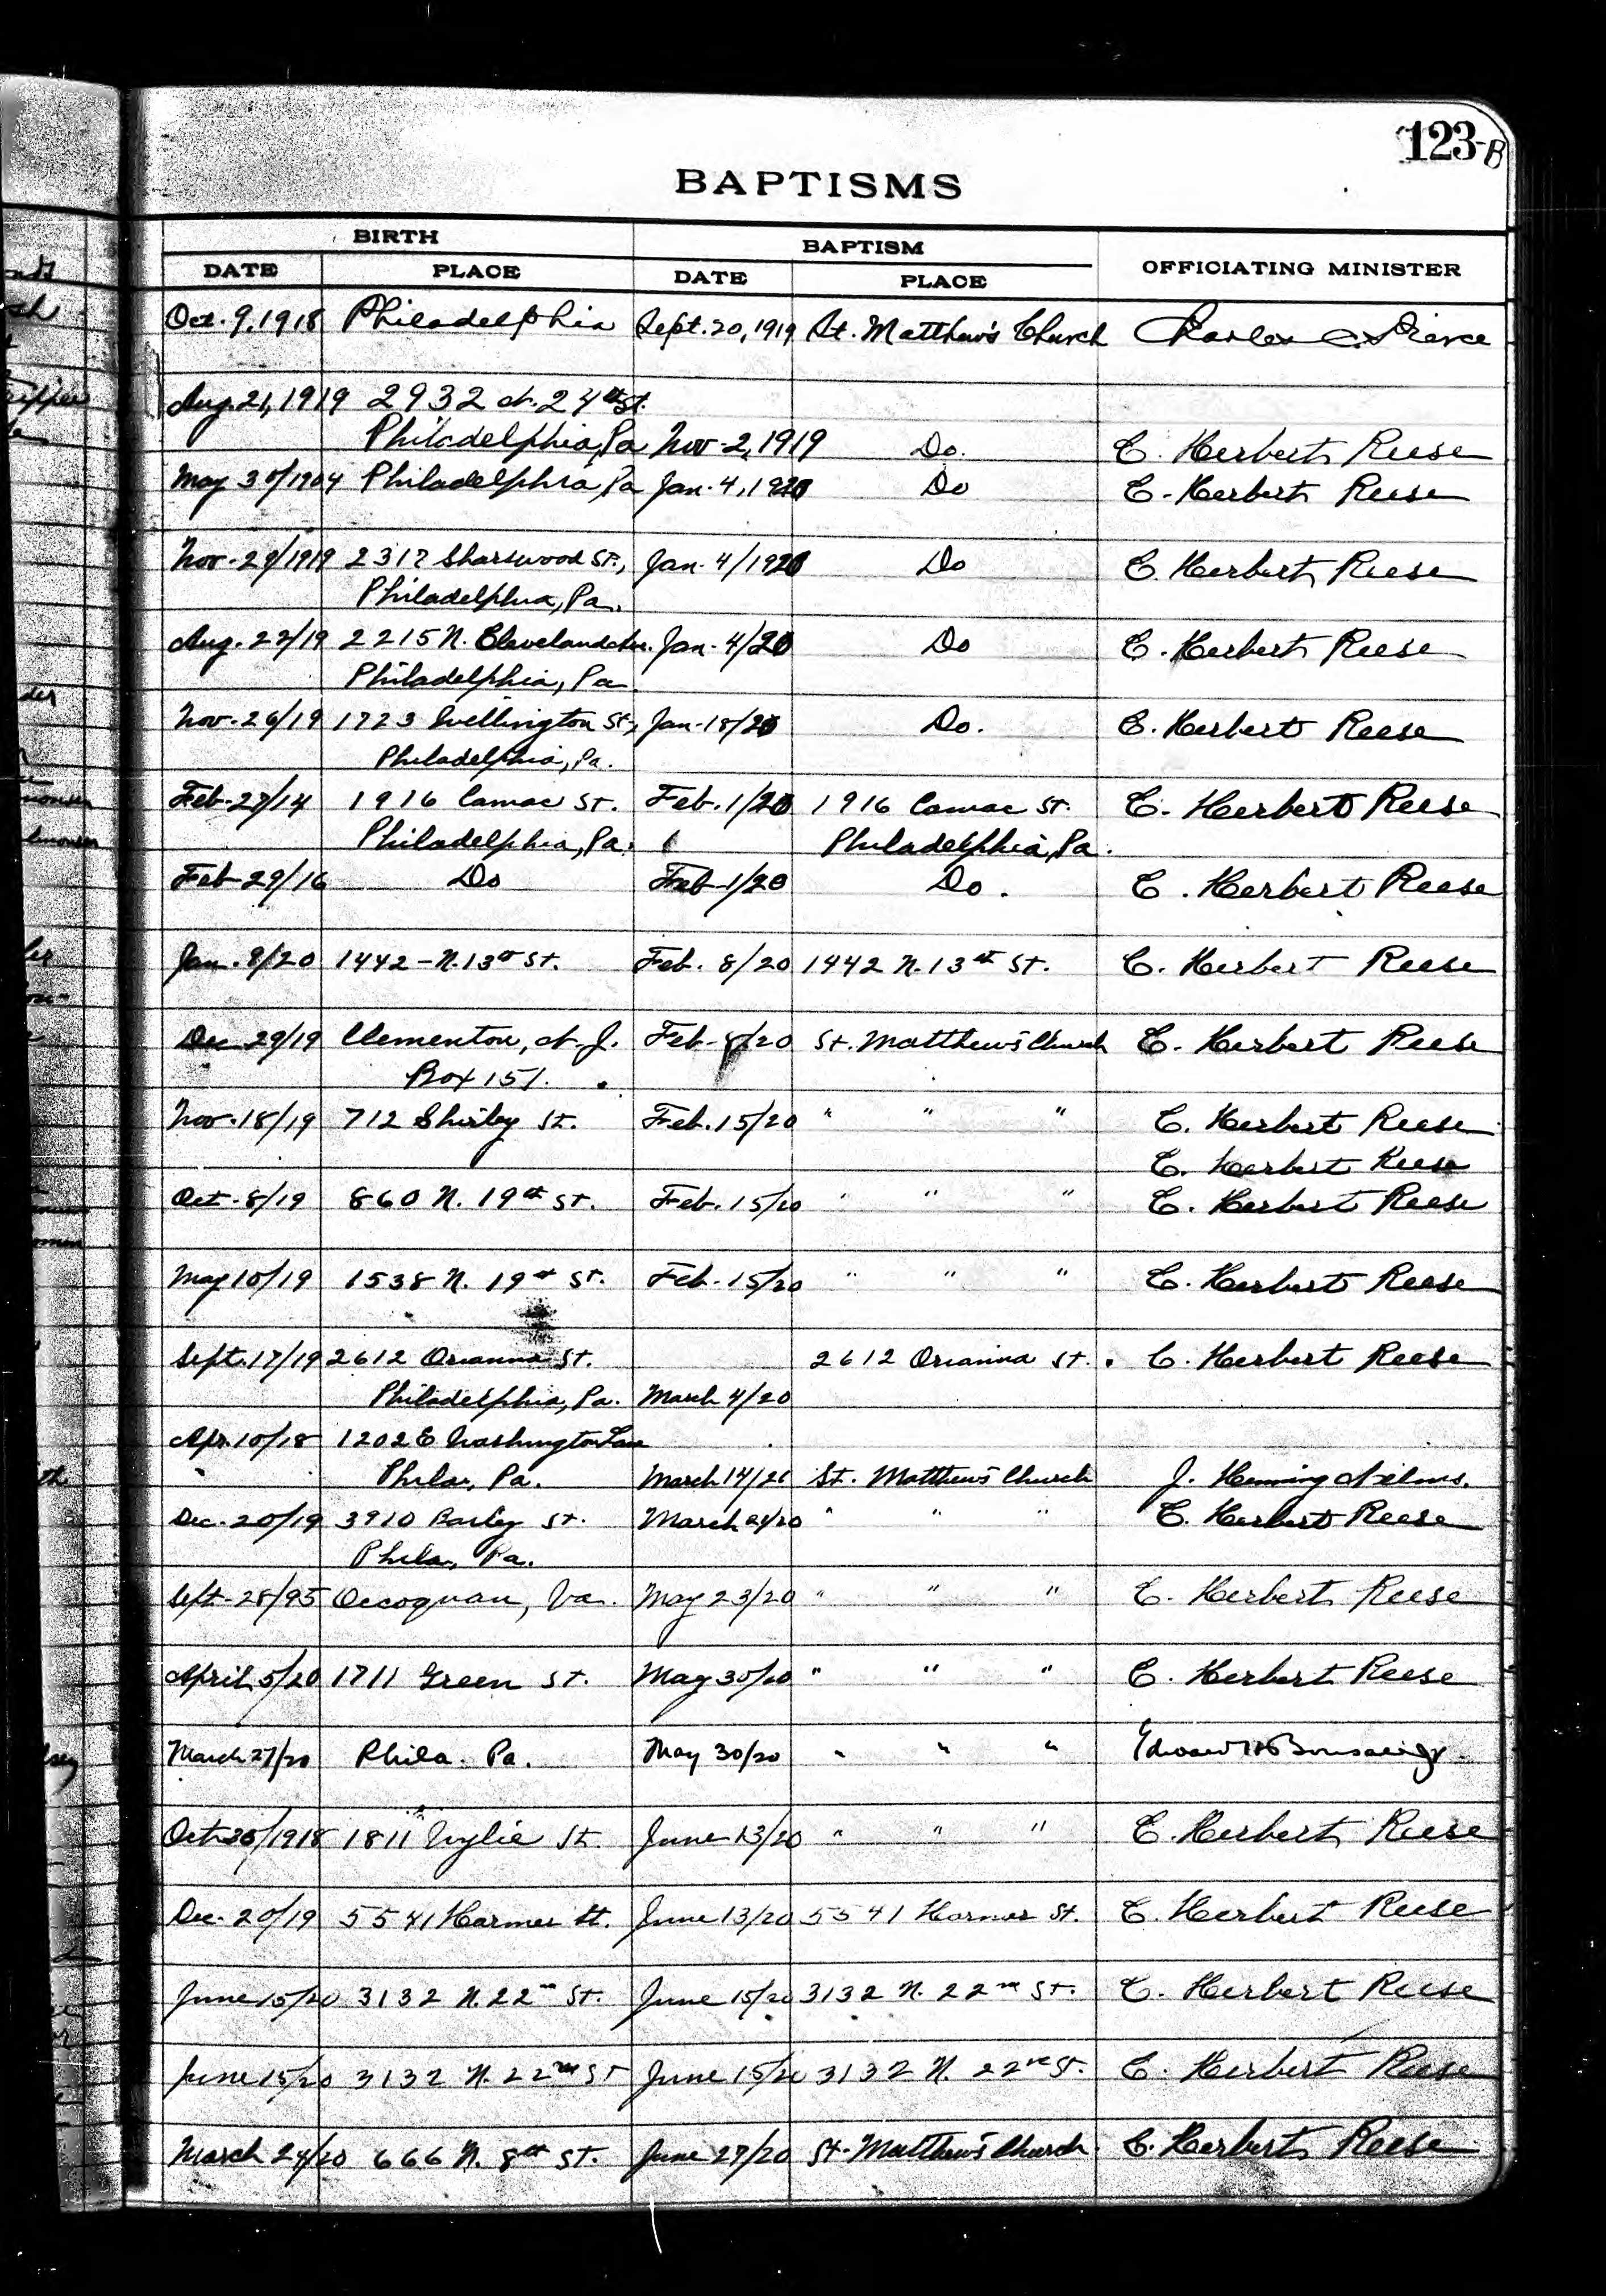 123-B
BAPTISMS
BIRTH BAPTISM OFFICIATING MINISTER
DATE PLACE DATE PLACE
Oct. 9, 1918 Philadelphia Sept. 20, 1919 St. Matthew's Church Charles C. Pierce
Aug. 21, 1919 2932 N. 24th St.
Philadelphia, Pa Nov-2, 1919 Do. E. Herbert Reese
May 30/1904 Philadelphia, Pa Jan. 4, 1920 Do E. Herbert Reese
Nov-29/1919 2317 Sharswood St., Jan. 4/1920 Do E. Herbert Reese
Philadelphia, Pa.
Aug. 22/19 2215 N. Cleveland Ave. Jan. 4/20 Do E. Herbert Reese
Philadelphia, Pa.
Nov-26/19 1723 Wellington St., Jan-18/20 Do. E. Herbert Reese
Philadelphia, Pa.
Feb-27/14 1916 Camac St. Feb. 1/20 1916 Camac St. E. Herbert Reese
Philadelphia, Pa. Philadelphia, Pa.
Feb-29/16 Do Feb-1/20 Do. E. Herbert Reese
Jan. 8/20 1442-N. 13th St. Feb. 8/20 1442 N. 13th St. E. Herbert Reese
Dec 29/19 Clementon, N.J. Feb-8/20 St. Matthew's Church E. Herbert Reese
Box 151.
Nov-18/19 712 Shirley St. Feb. 15/20 " " " E. Herbert Reese
E. Herbert Reese
Oct-8/19 860 N. 19th St. Feb. 15/20 " " " E. Herbert Reese
May 10/19 1538 N. 19th St. Feb-15/20 " " " E. Herbert Reese
Sept. 17/19 2612 Orianna St. 2612 Orianna St. E. Herbert Reese
Philadelphia, Pa. March 4/20
Apr. 10/18 1202 E Washington Lane
Phila, Pa. March 14/20 St. Matthew's Church J. Henning Nelms.
Dec. 20/19 3910 St. March /20 " " " E. Herbert Reese
Phila, Pa.
Sept-28/95 Occoquan, Va. May 23/20 " " " E. Herbert Reese
April 5/20 1711 Green St. May 30/20 " " " E. Herbert Reese
March 27/20 Phila. Pa. May 30/20 " " " Edward H Bonsall Jr.
Oct 30/1918 1811 Wylie St. June 13/20 " " " E. Herbert Reese
Dec. 20/19 5541 Harmer St. June 13/20 5541 Harmer St. E. Herbert Reese
June 15/20 3132 N. 22nd St. June 15/20 3132 N. 22nd St. E. Herbert Reese
June 15/20 3132 N. 22nd St June 15/20 3132 N. 22nd St. E. Herbert Reese
March 24/20 666 N. 8th St. June 27/20 St. Matthew's Church E. Herbert Reese